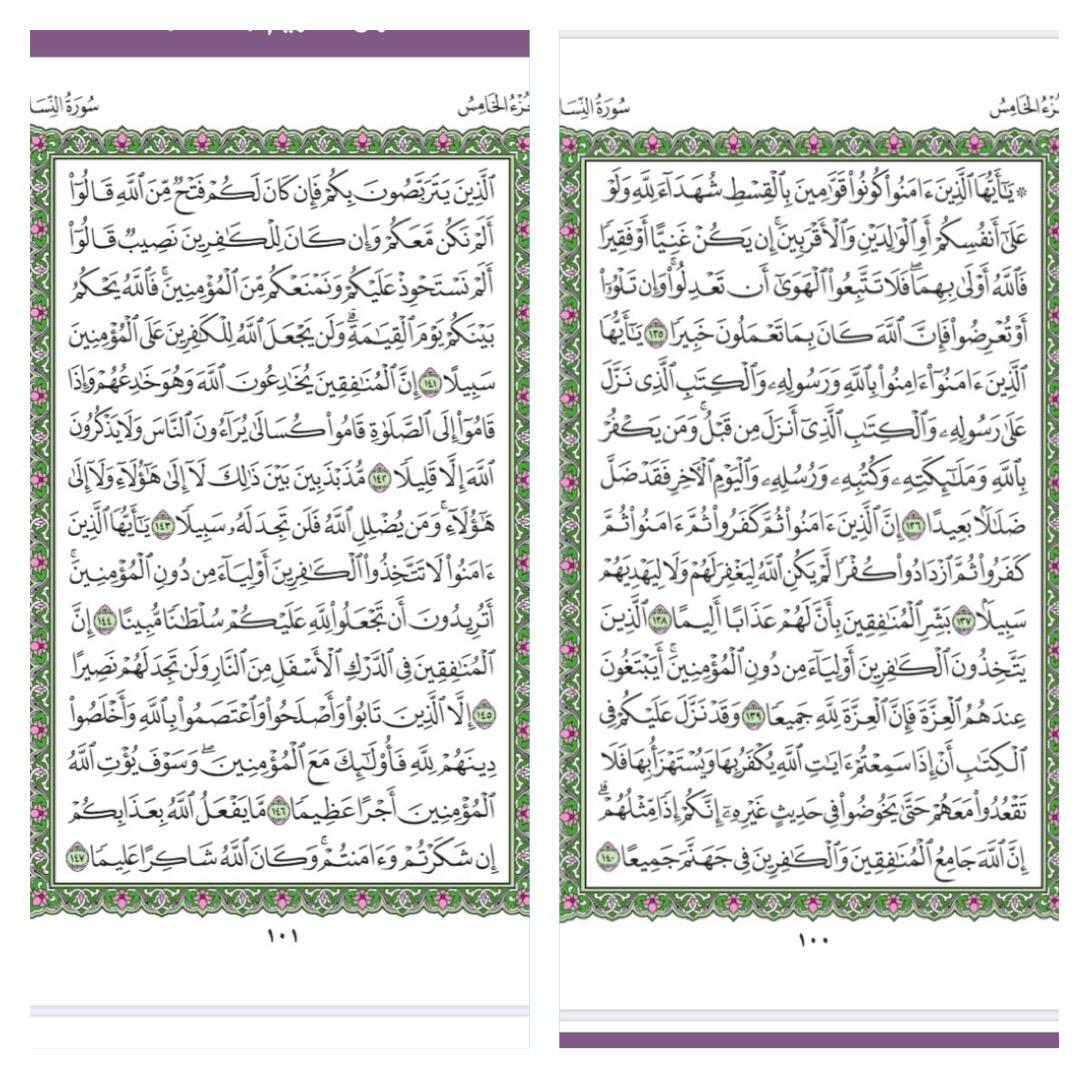 الجزء الخامس
سورة النسا
۞ يَٰٓأَيُّهَا ٱلَّذِينَ ءَامَنُوا۟ كُونُوا۟ قَوَّٰمِينَ بِٱلْقِسْطِ شُهَدَآءَ لِلَّهِ وَلَوْ
عَلَىٰٓ أَنفُسِكُمْ أَوِ ٱلْوَٰلِدَيْنِ وَٱلْأَقْرَبِينَ ۚ إِن يَكُنْ غَنِيًّا أَوْ فَقِيرًا
فَٱللَّهُ أَوْلَىٰ بِهِمَا ۖ فَلَا تَتَّبِعُوا۟ ٱلْهَوَىٰٓ أَن تَعْدِلُوا۟ ۚ وَإِن تَلْوُۥٓا۟
أَوْ تُعْرِضُوا۟ فَإِنَّ ٱللَّهَ كَانَ بِمَا تَعْمَلُونَ خَبِيرًا ١٣٥ يَٰٓأَيُّهَا
ٱلَّذِينَ ءَامَنُوٓا۟ ءَامِنُوا۟ بِٱللَّهِ وَرَسُولِهِۦ وَٱلْكِتَٰبِ ٱلَّذِى نَزَّلَ
عَلَىٰ رَسُولِهِۦ وَٱلْكِتَٰبِ ٱلَّذِىٓ أَنزَلَ مِن قَبْلُ ۚ وَمَن يَكْفُرْ
بِٱللَّهِ وَمَلَٰٓئِكَتِهِۦ وَكُتُبِهِۦ وَرُسُلِهِۦ وَٱلْيَوْمِ ٱلْءَاخِرِ فَقَدْ ضَلَّ
ضَلَٰلًۢا بَعِيدًا ١٣٦ إِنَّ ٱلَّذِينَ ءَامَنُوا۟ ثُمَّ كَفَرُوا۟ ثُمَّ ءَامَنُوا۟ ثُمَّ
كَفَرُوا۟ ثُمَّ ٱزْدَادُوا۟ كُفْرًا لَّمْ يَكُنِ ٱللَّهُ لِيَغْفِرَ لَهُمْ وَلَا لِيَهْدِيَهُمْ
سَبِيلًۢا ١٣٧ بَشِّرِ ٱلْمُنَٰفِقِينَ بِأَنَّ لَهُمْ عَذَابًا أَلِيمًا ١٣٨ ٱلَّذِينَ
يَتَّخِذُونَ ٱلْكَٰفِرِينَ أَوْلِيَآءَ مِن دُونِ ٱلْمُؤْمِنِينَ ۚ أَيَبْتَغُونَ
عِندَهُمُ ٱلْعِزَّةَ فَإِنَّ ٱلْعِزَّةَ لِلَّهِ جَمِيعًا ١٣٩ وَقَدْ نَزَّلَ عَلَيْكُمْ فِى
ٱلْكِتَٰبِ أَنْ إِذَا سَمِعْتُمْ ءَايَٰتِ ٱللَّهِ يُكْفَرُ بِهَا وَيُسْتَهْزَأُ بِهَا فَلَا
تَقْعُدُوا۟ مَعَهُمْ حَتَّىٰ يَخُوضُوا۟ فِى حَدِيثٍ غَيْرِهِۦٓ ۚ إِنَّكُمْ إِذًا مِّثْلُهُمْ ۗ
إِنَّ ٱللَّهَ جَامِعُ ٱلْمُنَٰفِقِينَ وَٱلْكَٰفِرِينَ فِى جَهَنَّمَ جَمِيعًا ١٤٠
١٠٠
الجزء الخامس
سورة النسا
ٱلَّذِينَ يَتَرَبَّصُونَ بِكُمْ فَإِن كَانَ لَكُمْ فَتْحٌ مِّنَ ٱللَّهِ قَالُوٓا۟
أَلَمْ نَكُن مَّعَكُمْ وَإِن كَانَ لِلْكَٰفِرِينَ نَصِيبٌ قَالُوٓا۟
أَلَمْ نَسْتَحْوِذْ عَلَيْكُمْ وَنَمْنَعْكُم مِّنَ ٱلْمُؤْمِنِينَ ۚ فَٱللَّهُ يَحْكُمُ
بَيْنَكُمْ يَوْمَ ٱلْقِيَٰمَةِ ۗ وَلَن يَجْعَلَ ٱللَّهُ لِلْكَٰفِرِينَ عَلَى ٱلْمُؤْمِنِينَ
سَبِيلًا ١٤١ إِنَّ ٱلْمُنَٰفِقِينَ يُخَٰدِعُونَ ٱللَّهَ وَهُوَ خَٰدِعُهُمْ وَإِذَا
قَامُوٓا۟ إِلَى ٱلصَّلَوٰةِ قَامُوا۟ كُسَالَىٰ يُرَآءُونَ ٱلنَّاسَ وَلَا يَذْكُرُونَ
ٱللَّهَ إِلَّا قَلِيلًا ١٤٢ مُّذَبْذَبِينَ بَيْنَ ذَٰلِكَ لَآ إِلَىٰ هَٰٓؤُلَآءِ وَلَآ إِلَىٰ
هَٰٓؤُلَآءِ ۚ وَمَن يُضْلِلِ ٱللَّهُ فَلَن تَجِدَ لَهُۥ سَبِيلًا ١٤٣ يَٰٓأَيُّهَا ٱلَّذِينَ
ءَامَنُوا۟ لَا تَتَّخِذُوا۟ ٱلْكَٰفِرِينَ أَوْلِيَآءَ مِن دُونِ ٱلْمُؤْمِنِينَ ۚ
أَتُرِيدُونَ أَن تَجْعَلُوا۟ لِلَّهِ عَلَيْكُمْ سُلْطَٰنًا مُّبِينًا ١٤٤ إِنَّ
ٱلْمُنَٰفِقِينَ فِى ٱلدَّرْكِ ٱلْأَسْفَلِ مِنَ ٱلنَّارِ وَلَن تَجِدَ لَهُمْ نَصِيرًا
١٤٥ إِلَّا ٱلَّذِينَ تَابُوا۟ وَأَصْلَحُوا۟ وَٱعْتَصَمُوا۟ بِٱللَّهِ وَأَخْلَصُوا۟
دِينَهُمْ لِلَّهِ فَأُو۟لَٰٓئِكَ مَعَ ٱلْمُؤْمِنِينَ ۖ وَسَوْفَ يُؤْتِ ٱللَّهُ
ٱلْمُؤْمِنِينَ أَجْرًا عَظِيمًا ١٤٦ مَّا يَفْعَلُ ٱللَّهُ بِعَذَابِكُمْ
إِن شَكَرْتُمْ وَءَامَنتُمْ ۚ وَكَانَ ٱللَّهُ شَاكِرًا عَلِيمًا ١٤٧
١٠١